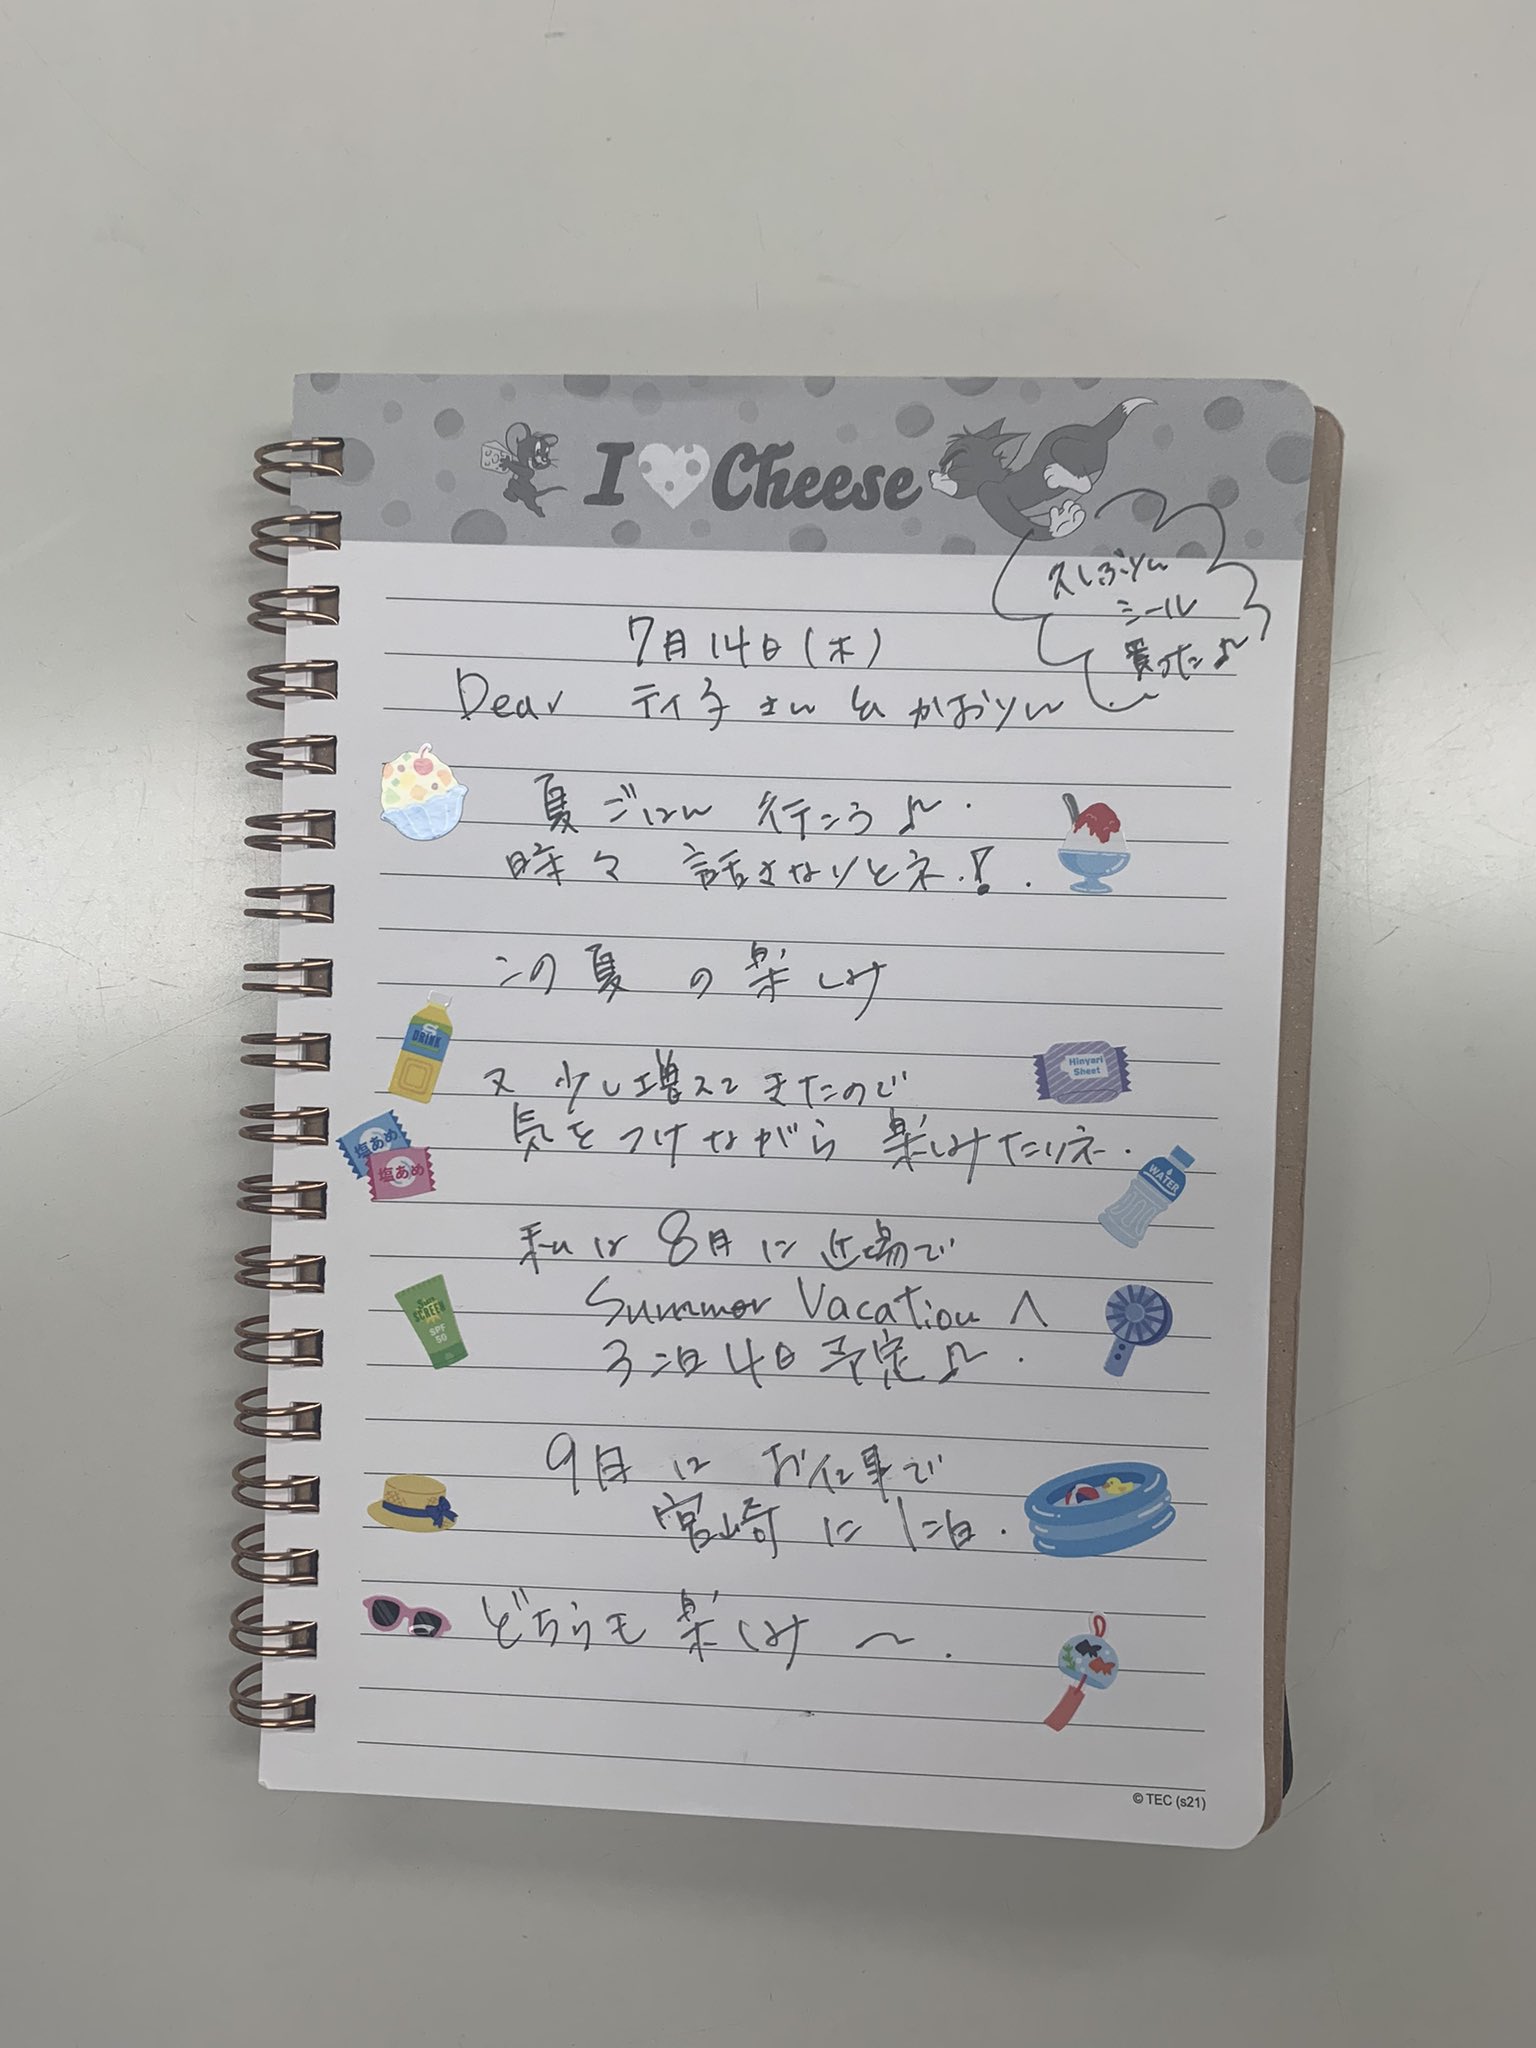 I ♥ Cheese
久しぶりに
シール
買った♪
7月14日(木)
Dear ティ子さん & かおりん
夏ごはん 行こう♪.
時々 話さないとネ!.
この夏 の 楽しみ
又 少し増えてきたので
気をつけながら 楽しみたいネ.
私は 8月に 近場で
Summer Vacation へ
3泊4日予定♪.
9月に お仕事で
宮崎に 1泊.
どちらも 楽しみ 〜.
DRINK
Hinyari
Sheet
塩あめ
塩あめ
WATER
SCREEN
SPF
50
© TEC (s21)